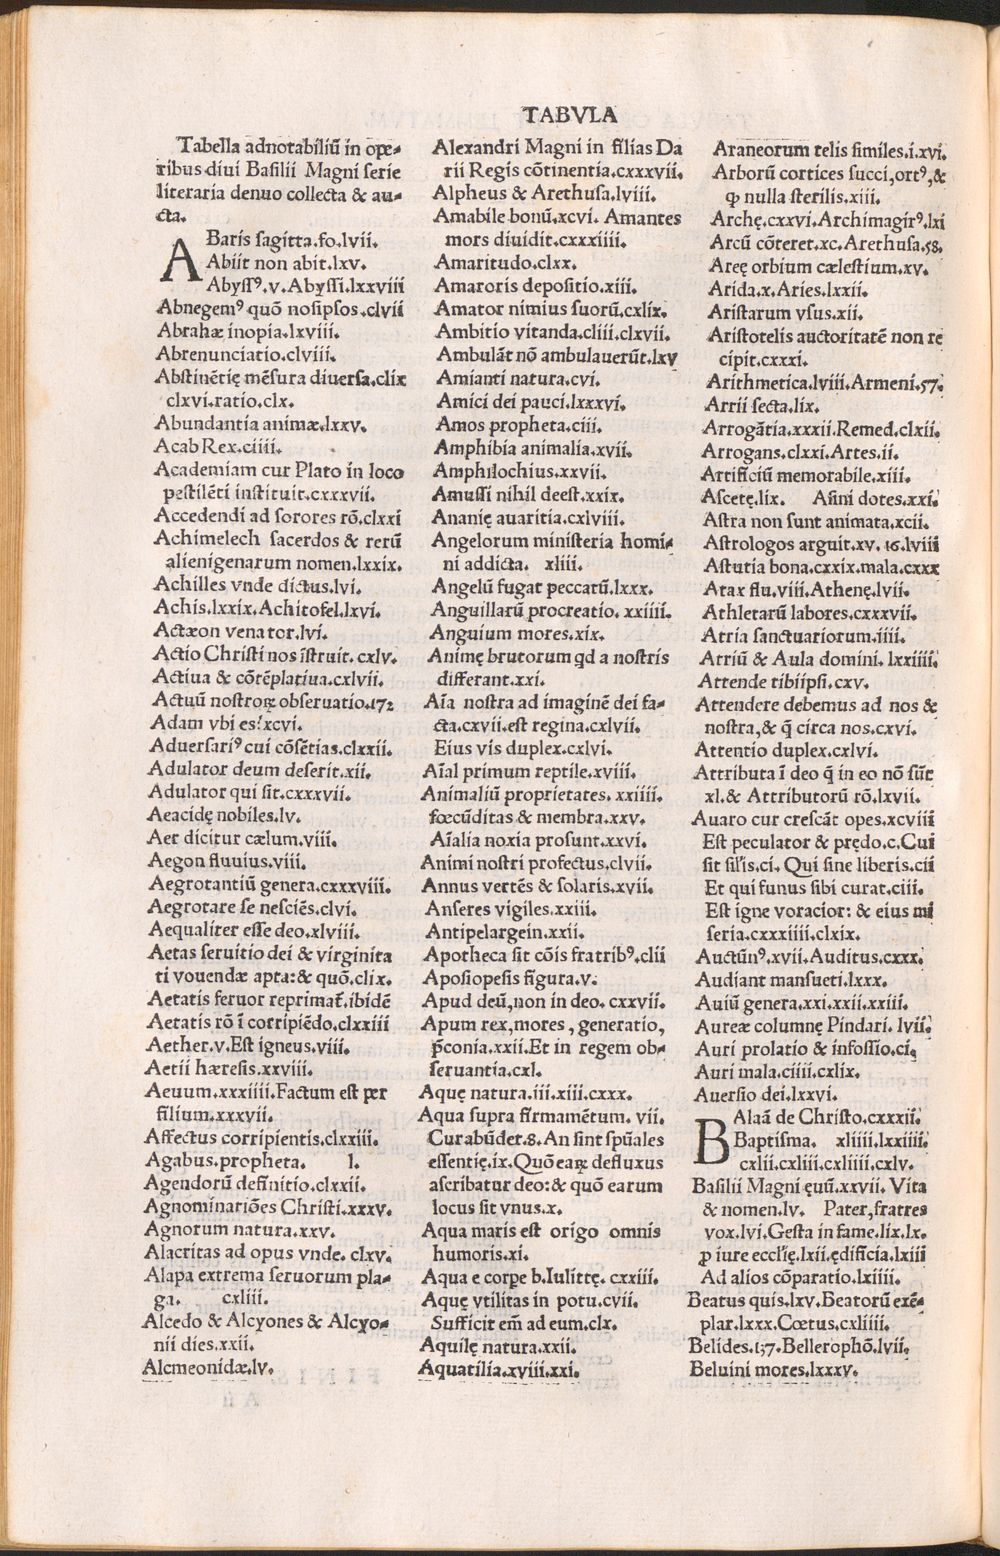 TABVLA
Tabella adnotabiliũ in ope-
ribus diui Basilii Magni serie
literaria denuo collecta & au-
cta.
ABaris sagitta.fo.lvii.
Abiit non abit.lxv.
Abyssꝰ.v.Abyssi.lxxviii
Abnegemꝰ quõ nosipsos.clvii
Abrahæ inopia.lxviii.
Abrenunciatio.clviii.
Abstinẽtię mẽsura diuersa.clix
clxvi.ratio.clx.
Abundantia animæ.lxxv.
Acab Rex.ciiii.
Academiam cur Plato in loco
pestilẽti instituit.cxxxvii.
Accedendi ad sorores rõ.clxxi
Achimelech sacerdos & rerũ
alienigenarum nomen.lxxix.
Achilles vnde dictus.lvi.
Achis.lxxix.Achitofel.lxvi.
Actæon venator.lvi.
Actio Christi nos ĩstruit.cxlv.
Actiua & cõtẽplatiua.cxlvii.
Actuũ nostroꝝ obseruatio.172
Adam vbi es?xcvi.
Aduersariꝰ cui cõsẽtias.clxxii.
Adulator deum deserit.xii.
Adulator qui sit.cxxxvii.
Aeacidę nobiles.lv.
Aer dicitur cælum.viii.
Aegon fluuius.viii.
Aegrotantiũ genera.cxxxviii.
Aegrotare se nesciẽs.clvi.
Aequaliter esse deo.xlviii.
Aetas seruitio dei & virginita
ti vouendæ apta:& quõ.clix.
Aetatis feruor reprimat̃.ibidẽ
Aetatis rõ ĩ corripiẽdo.clxxiii
Aether.v.Est igneus.viii.
Aetii hæresis.xxviii.
Aeuum.xxxiiii.Factum est per
filium.xxxvii.
Affectus corripientis.clxxiii.
Agabus.propheta. l.
Agendorũ definitio.clxxii.
Agnominariões Christi.xxxv.
Agnorum natura.xxv.
Alacritas ad opus vnde. clxv.
Alapa extrema seruorum pla-
ga. cxliii.
Alcedo & Alcyones & Alcyo-
nii dies.xxii.
Alcmeonidæ.lv.
Alexandri Magni in filias Da
rii Regis cõtinentia.cxxxvii.
Alpheus & Arethusa.lviii.
Amabile bonũ.xcvi. Amantes
mors diuidit.cxxxiiii.
Amaritudo.clxx.
Amaroris depositio.xiii.
Amator nimius suorũ.cxlix.
Ambitio vitanda.cliii.clxvii.
Ambulãt nõ ambulauerũt.lxv
Amianti natura.cvi.
Amici dei pauci.lxxxvi.
Amos propheta.ciii.
Amphibia animalia.xvii.
Amphilochius.xxvii.
Amussi nihil deest.xxix.
Ananię auaritia.cxlviii.
Angelorum ministeria homi-
ni addicta. xliii.
Angelũ fugat peccatũ.lxxx.
Anguillarũ procreatio. xxiiii.
Anguium mores.xix.
Animę brutorum qd a nostris
differant.xxi.
Aĩa nostra ad imaginẽ dei fa-
cta.cxvii.est regina.cxlvii.
Eius vis duplex.cxlvi.
Aĩal primum reptile.xviii.
Animaliũ proprietates. xxiiii.
fœcũditas & membra.xxv.
Aĩalia noxia prosunt.xxvi.
Animi nostri profectus.clvii.
Annus vertẽs & solaris.xvii.
Anseres vigiles.xxiii.
Antipelargein.xxii.
Apotheca sit cõis fratribꝰ.clii
Aposiopesis figura.v.
Apud deũ,non in deo. cxxvii.
Apum rex,mores, generatio,
p̃conia.xxii.Et in regem ob-
seruantia.cxl.
Aquę natura.iii.xiii.cxxx.
Aqua supra firmamẽtum. vii.
Cur abũdet.8.An sint spũales
essentię.ix.Quõ eaꝝ defluxus
ascribatur deo:& quõ earum
locus sit vnus.x.
Aqua maris est origo omnis
humoris.xi.
Aqua e corpe b.Iulittę. cxxiii.
Aquę vtilitas in potu.cvii.
Sufficit em̃ ad eum.clx.
Aquilę natura.xxii.
Aquatilia.xviii.xxi.
Araneorum telis similes.i.xvi.
Arborũ cortices succi,ortꝰ,&
ꝙ nulla sterilis.xiii.
Archę.cxxvi.Archimagirꝰ.lxi
Arcũ cõteret.xc.Arethusa.58.
Areę orbium cælestium.xv.
Arida.x.Aries.lxxii.
Aristarum vsus.xii.
Aristotelis auctoritatẽ non re
cipit.cxxxi.
Arithmetica.lviii.Armeni.57.
Arrii secta.lix.
Arrogãtia.xxxii.Remed.clxii.
Arrogans.clxxi.Artes.ii.
Artificiũ memorabile.xiii.
Ascetę.lix. Asini dotes.xxi.
Astra non sunt animata.xcii.
Astrologos arguit.xv.16.lviii
Astutia bona.cxxix.mala.cxxx
Atax flu.viii.Athenę.lvii.
Athletarũ labores.cxxxvii.
Atria sanctuariorum.iiii.
Atriũ & Aula domini. lxxiiii.
Attende tibiipsi.cxv.
Attendere debemus ad nos &
nostra,& q̃ circa nos.cxvi.
Attentio duplex.cxlvi.
Attributa ĩ deo q̃ in eo nõ sũt
xl.& Attributorũ rõ.lxvii.
Auaro cur crescãt opes.xcviii
Est peculator & prędo.c.Cui
sit sil̃is.ci. Qui sine liberis.cii
Et qui funus sibi curat.ciii.
Est igne voracior: & eius mi
seria.cxxxiiii.clxix.
Auctũnꝰ.xvii.Auditus.cxxx.
Audiant mansueti.lxxx.
Auiũ genera.xxi.xxii.xxiii.
Aureæ columnę Pindari. lvii.
Auri prolatio & infossio.ci.
Auri mala.ciiii.cxlix.
Auersio dei.lxxvi.
BAlaã de Christo.cxxxii.
Baptisma. xliiii.lxxiiii.
cxlii.cxliii.cxliiii.cxlv.
Basilii Magni ęuũ.xxvii. Vita
& nomen.lv. Pater,fratres
vox.lvi.Gesta in fame.lix.lx.
ꝓ iure eccl̃ię.lxii.ędificia.lxiii
Ad alios cõparatio.lxiiii.
Beatus quis.lxv.Beatorũ exẽ-
plar.lxxx.Cœtus.cxliiii.
Belides.137.Bellerophõ.lvii.
Beluini mores.lxxxv.